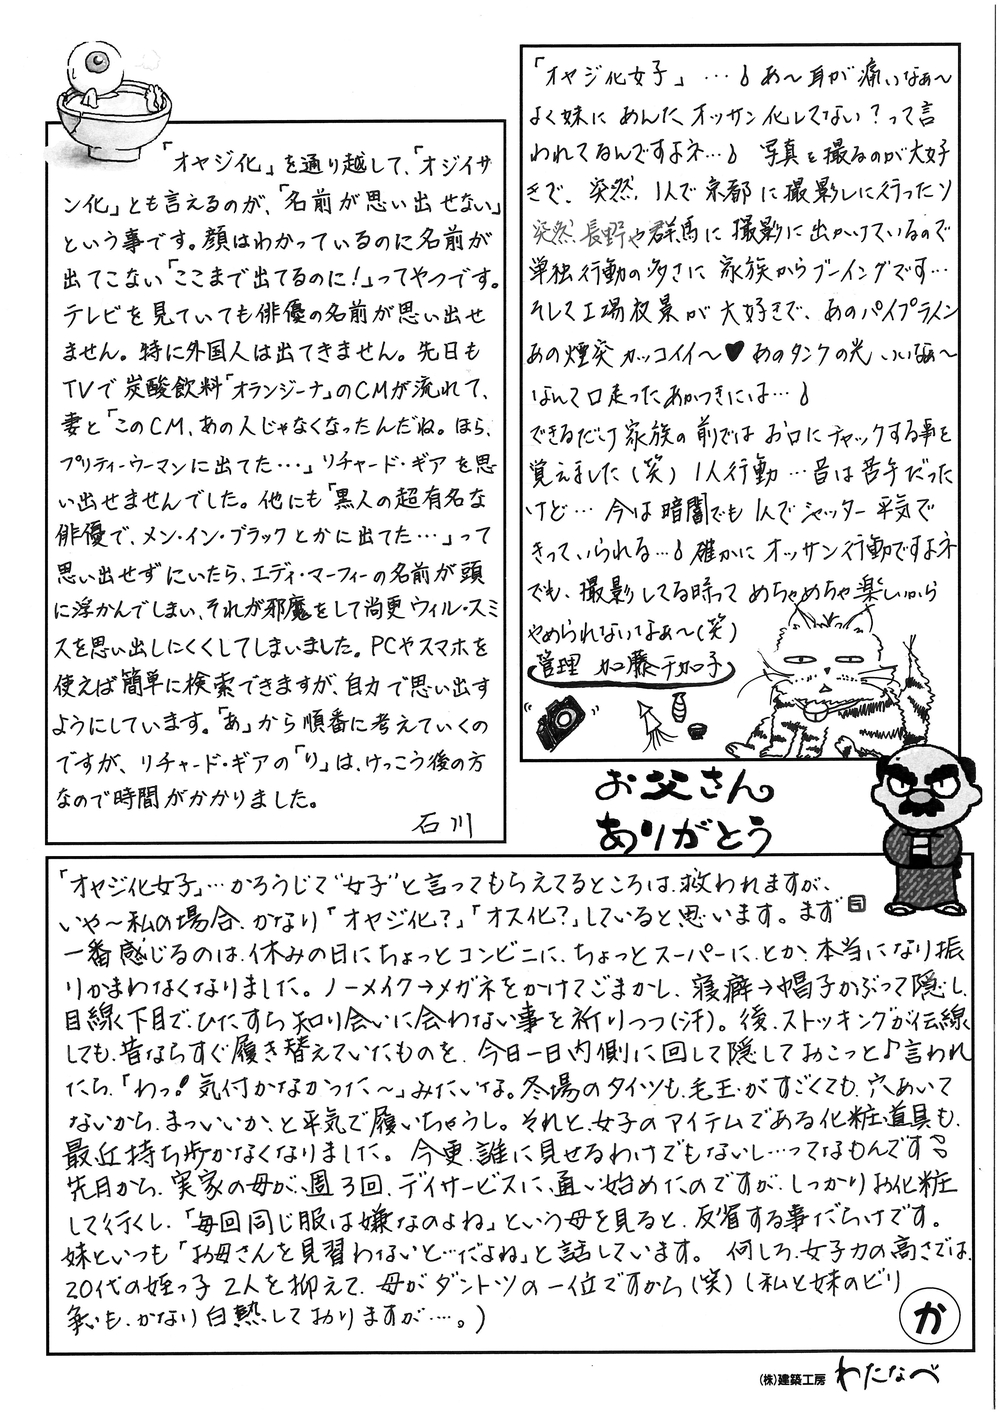 「オヤジ化」を通り越して、「オジイサ
ン化」とも言えるのが、「名前が思い出せない」
という事です。顔はわかっているのに名前が
出てこない「ここまで出てるのに!」ってやつです。
テレビを見ていても俳優の名前が思い出せ
ません。特に外国人は出てきません。先日も
TVで炭酸飲料「オランジーナ」のCMが流れて、
妻と「このCM、あの人じゃなくなったんだね。ほら、
プリティーウーマンに出てた・・・」リチャード・ギアを思
い出せませんでした。他にも「黒人の超有名な
俳優で、メン・イン・ブラックとかに出てた・・・」って
思い出せずにいたら、エディ・マーフィーの名前が頭
に浮かんでしまい、それが邪魔をして尚更ウィル・スミ
スを思い出しにくくしてしまいました。PCやスマホを
使えば簡単に検索できますが、自力で思い出す
ようにしています。「あ」から順番に考えていくの
ですが、リチャード・ギアの「り」は、けっこう後の方
なので時間がかかりました。
石川
「オヤジ化女子」…♪あ〜耳が痛いなぁ〜
よく妹にあんたオッサン化してない?って言
われてるんですよネ…♪写真を撮るのが大好
きで、突然、1人で京都に撮影しに行ったり
突然長野や群馬に撮影に出かけているので
単独行動の多さに家族からブーイングです…
そして工場夜景が大好きで、あのパイプライン
あの煙突カッコイイ〜♥あのタンクの光いいなぁ〜
なんて口走ったあかつきには…♪
できるだけ家族の前ではお口にチャックする事を
覚えました(笑)1人行動…昔は苦手だった
けど…今は暗闇でも1人でシャッター平気で
きっていられる…♪確かにオッサン行動ですよネ
でも、撮影してる時ってめちゃめちゃ楽しいから
やめられないなぁ〜(笑)
管理 加藤千加子
お父さん
ありがとう
「オヤジ化女子」…かろうじて"女子"と言ってもらえてるところは、救われますが、
いや〜私の場合、かなり「オヤジ化?」「オス化?」していると思います。まず
一番感じるのは、休みの日にちょっとコンビニに、ちょっとスーパーに、とか、本当になり振
りかまわなくなりました。ノーメイク→メガネをかけてごまかし、寝癖→帽子かぶって隠し、
目線く下目で、ひたすら知り会いに会わない事を祈りつつ(汗)。後、ストッキングが伝線
しても、昔ならすぐ履き替えていたものを、今日一日内側に回して隠しておこっと♪言われ
たら、「わっ!気付かなかった〜」みたいな。冬場のタイツも、毛玉がすごくても、穴あいて
ないから、まっいいか、と平気で履いちゃうし。それと、女子のアイテムである化粧道具も、
最近持ち歩かなくなりました。今更、誰に見せるわけでもないし…ってなもんです
先月から、実家の母が、週3回、デイサービスに、通い始めたのですが、しっかりお化粧
して行くし、「毎回同じ服は嫌なのよね」という母を見ると、反省する事だらけです。
妹といつも「お母さんを見習わないと…だよね」と話しています。何しろ、女子力の高さでは、
20代の姪っ子2人を抑えて、母がダントツの一位ですから(笑)(私と妹のビリ
争いも、かなり白熱しておりますが……。)
か
(株)建築工房 わたなべ